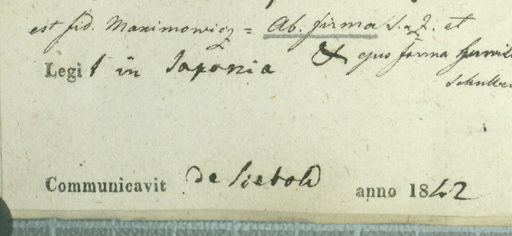 est fid. Maximowicz = Ab. firma S. & Z. et
Legit in Japonia & ejus forma
Communicavit de Siebold anno 1842